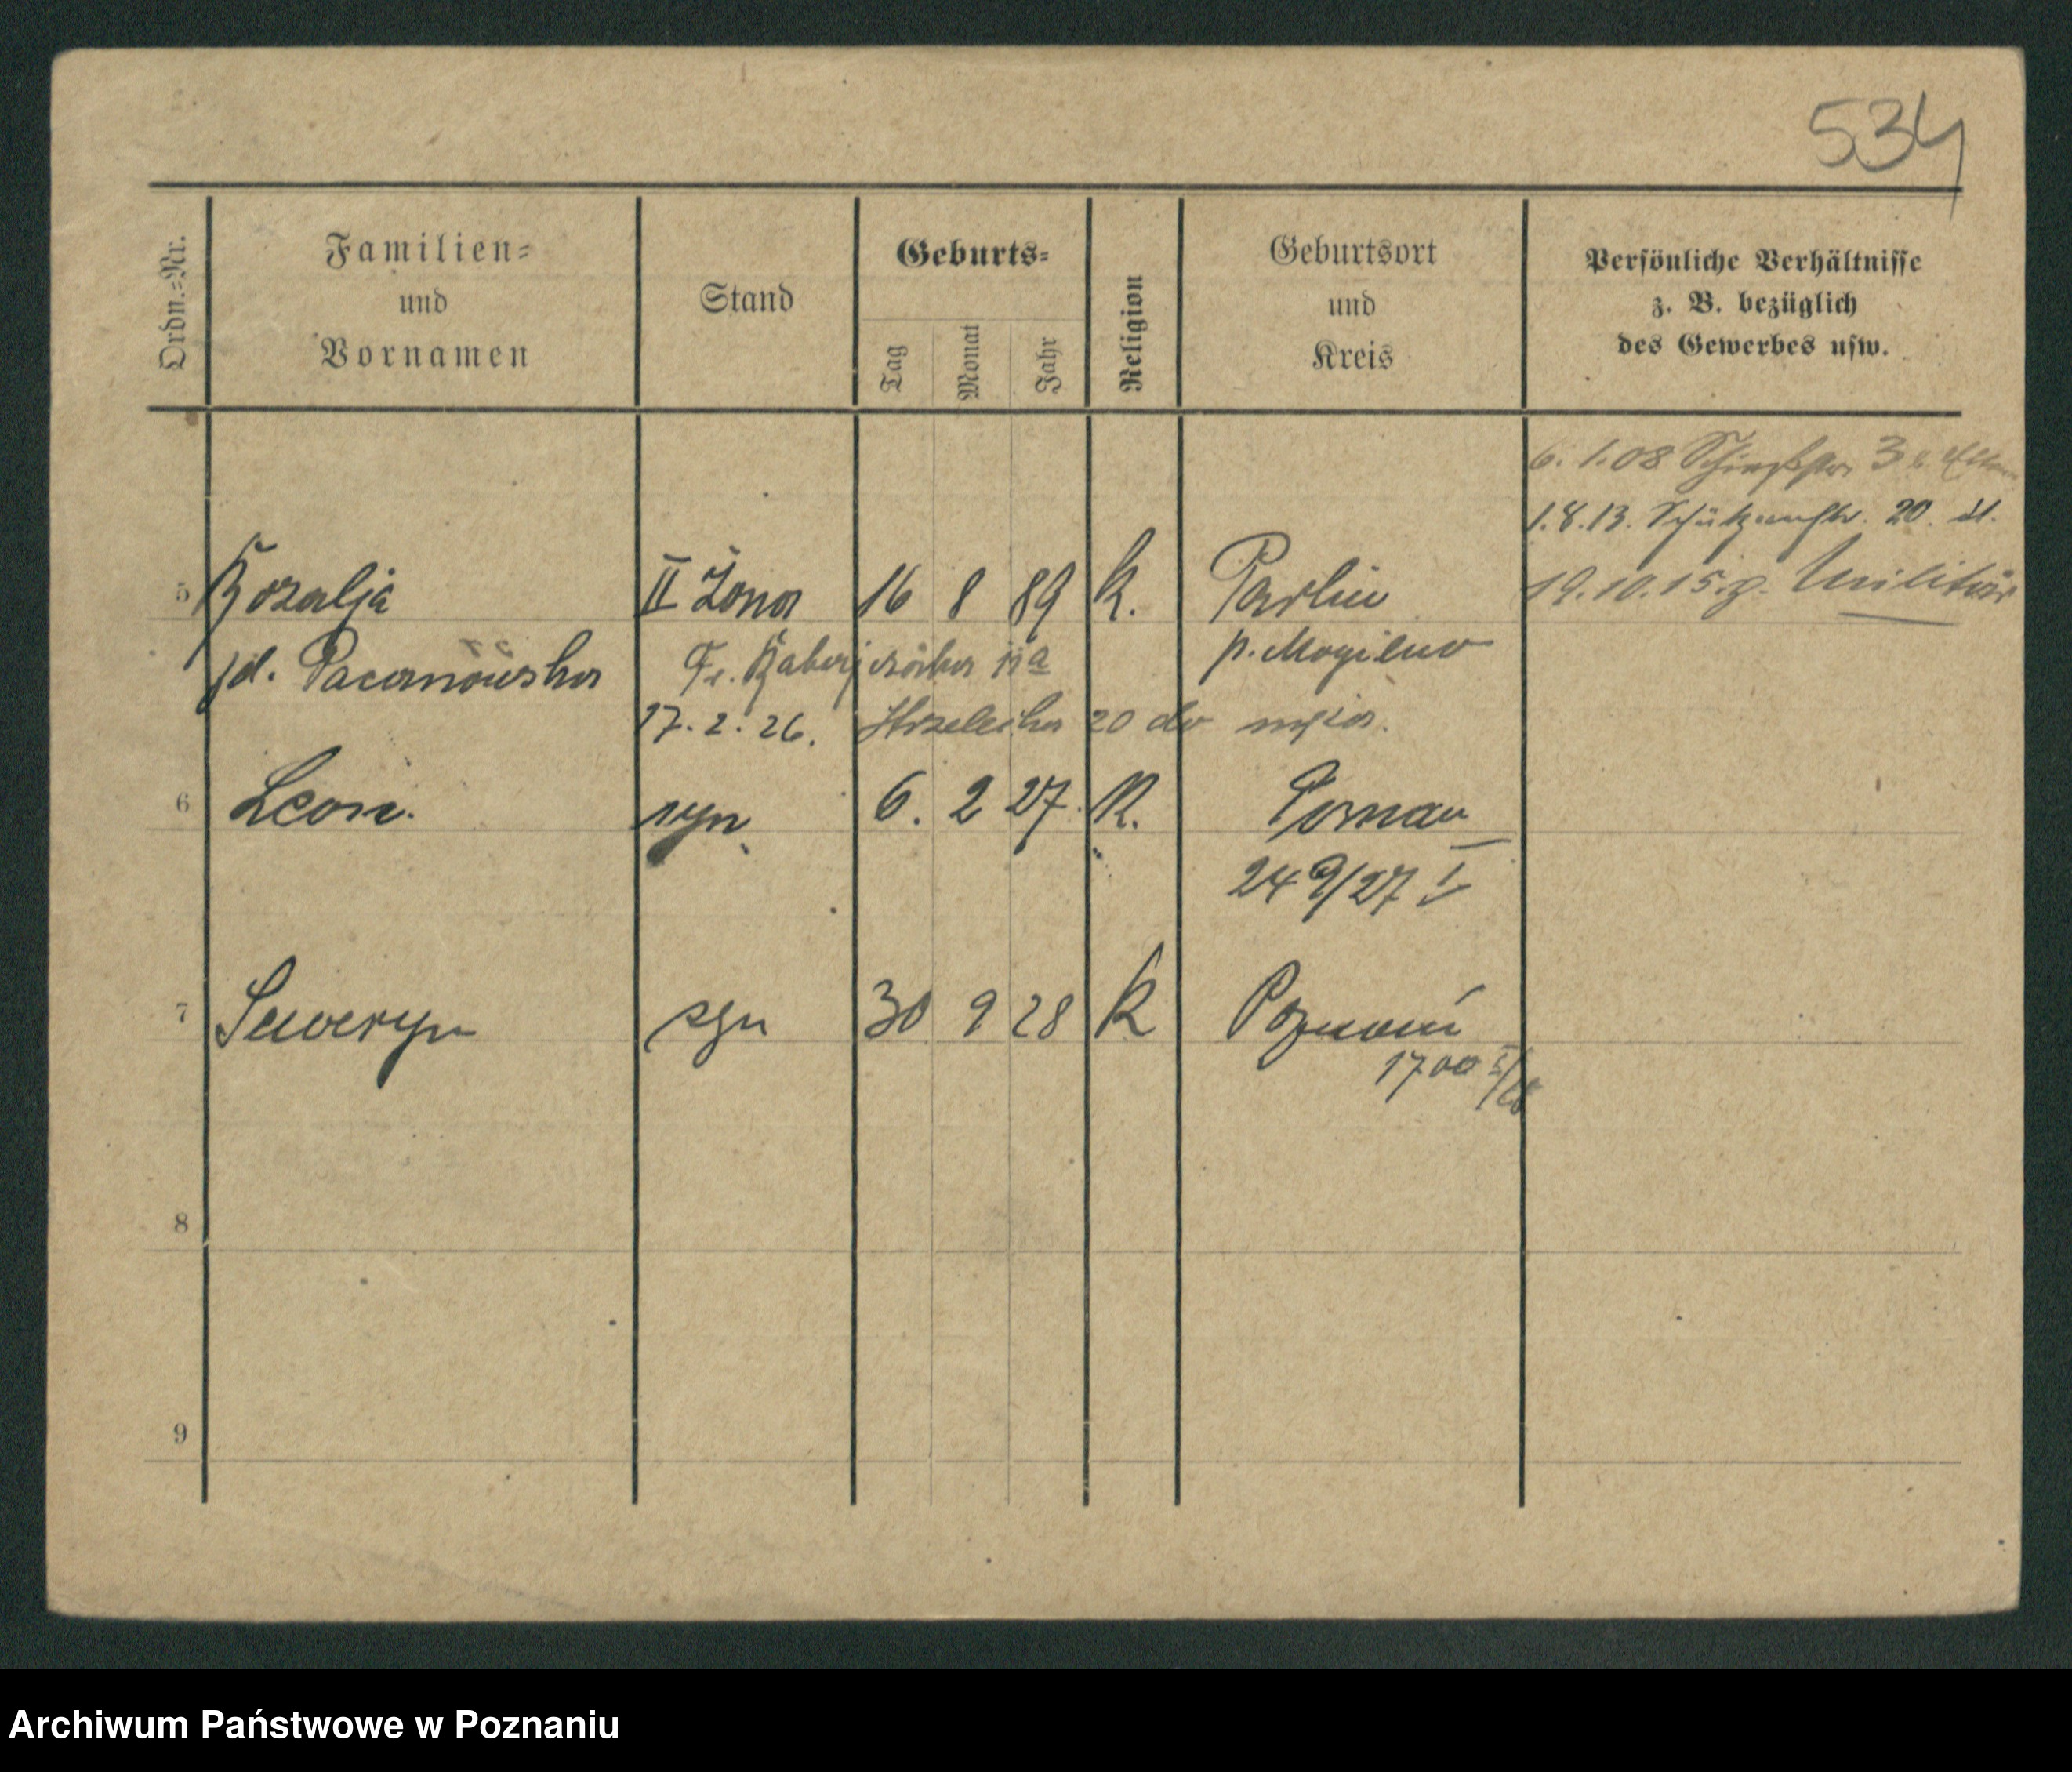 534
Ordn.-Nr.
Familien-
und
Vornamen
Stand
Geburts-
Tag
Monat
Jahr
Religion
Geburtsort
und
Kreis
Persönliche Verhältnisse
z. B. bezüglich
des Gewerbes usw.
6. 1.08 3
1.8.13. Schützenstr. 20.
19.10.15. z. Militär
5 Rozalja II Żona 16 8 89 k. Parlin
p. Mogilno
17.2.26. Strzelecka 20 do
6 Leon. syn 6. 2 27. k. Poznań
249/27 I
7 Seweryn syn 30 9 28 k Poznań
1700 I/28
8
9
Archiwum Państwowe w Poznaniu